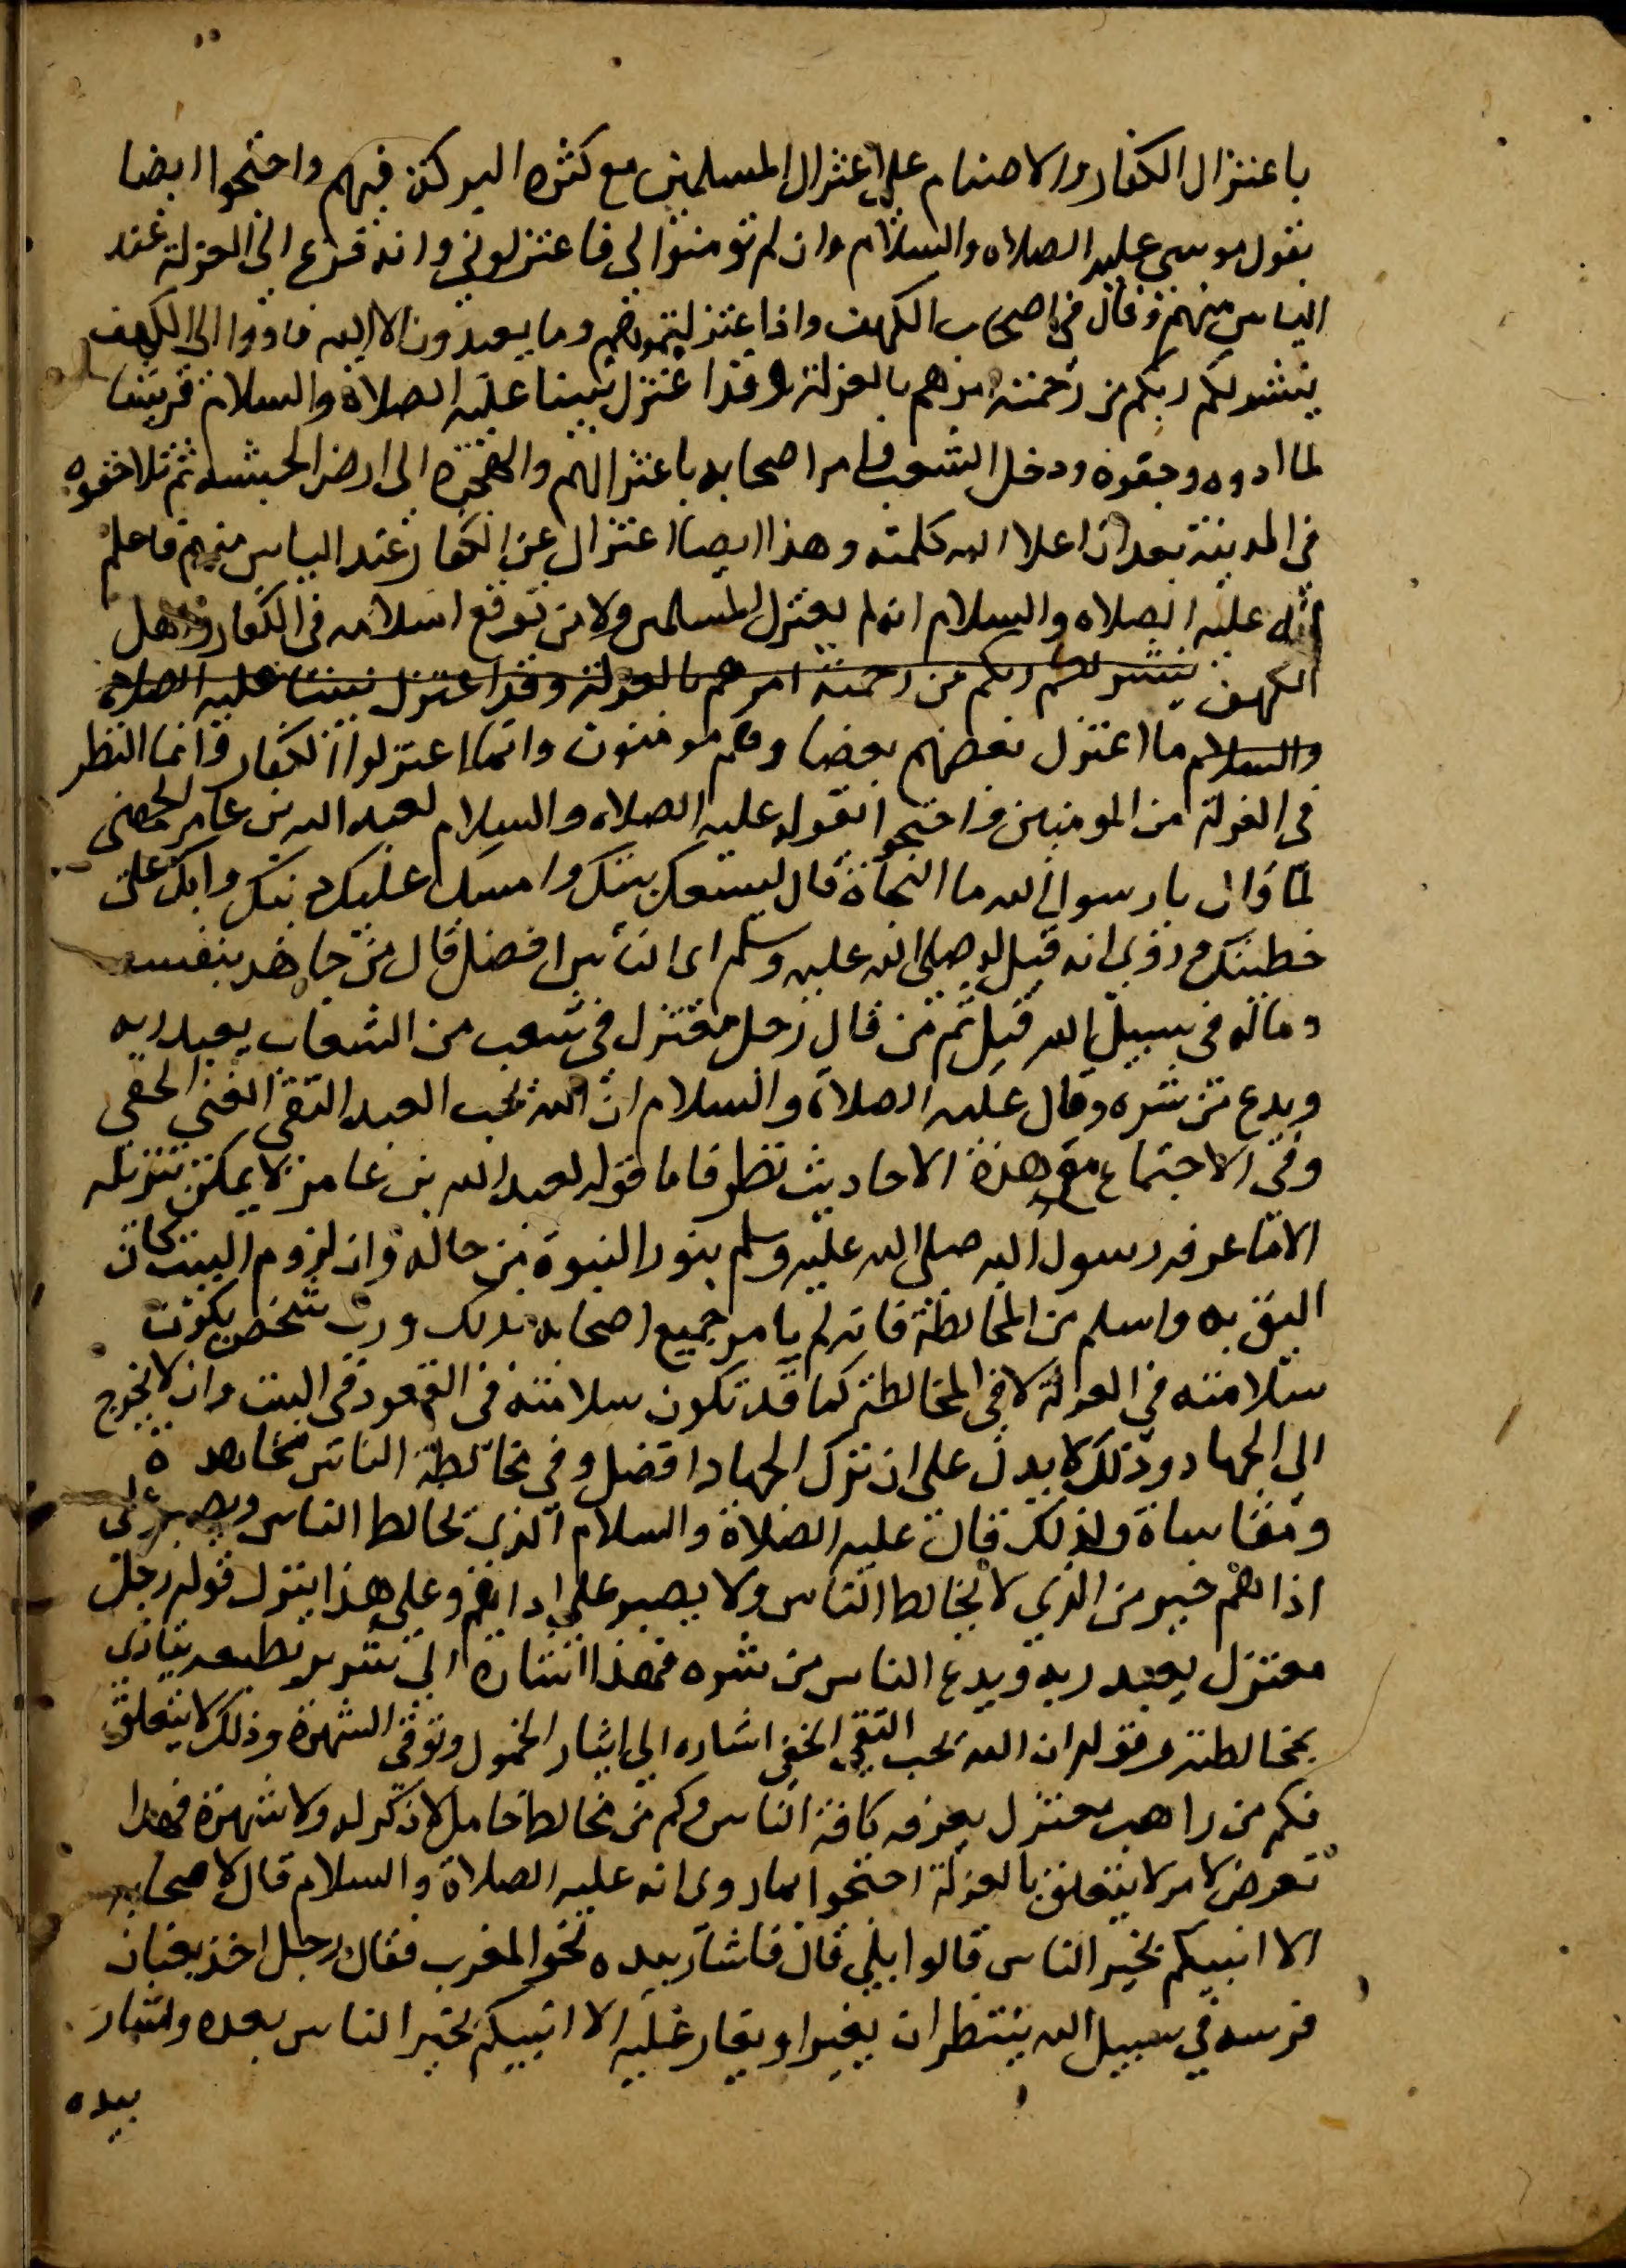 باعتزال الكفار والاصنام على اعتزال المسلمين مع كثرة البركة فيهم واحتجوا ايضا
بقول موسى عليه الصلاه والسلام وان لم تومنوا لي فاعتزلوني وانه فزع الى العزلة عند
الياس منهم وقال في اصحاب الكهف واذ اعتزلتموهم وما يعبدون الا الله فاووا الى الكهف
ينشر لكم ربكم من رحمته امرهم بالعزلة وقد اعتزل نبينا عليه الصلاة والسلام قريشا
لما اذوه وجفوه ودخل الشعب وامر اصحابه باعتزالهم والهجرة الى ارض الحبشه ثم تلاحقوه
في المدينة بعد ان اعلا الله كلمته وهذا ايضا اعتزال عن الكفار عند الياس منهم فاعلم
انه عليه الصلاه والسلام انه لم يعتزل المسلمين ولا من توقع اسلامه في الكفار واهل
الكهف ينشر لكم ربكم من رحمته امرهم بالعزلة وقد اعتزل نبينا عليه الصلاة
والسلام ما اعتزل بعضهم بعضا وهم مومنون وانما اعتزلوا الكفار وانما النظر
في العزلة من المومنين واحتجوا بقوله عليه الصلاه والسلام لعبد الله بن عامر الجهني
لما قال يا رسول الله ما النجاة قال ليسعك بيتك وامسك عليك دينك وابك على
خطيتك وروي انه قيل له صلى الله عليه وسلم اى الناس افضل قال من جاهد بنفسه
وماله في سبيل الله قيل ثم من قال رجل معتزل في شعب من الشعاب يعبد ربه
ويدع من شره وقال عليه الصلاة والسلام ان الله يحب العبد التقي الغني الخفي
وفي الاجتماع مع هذه الاحاديث نظر فاما قوله لعبد الله بن عامر لا يمكن تنزيله
الا ما عرفه رسول الله صلى الله عليه وسلم بنور النبوة من حاله وان لزوم البيت كان
اليق به واسلم من المخالطة فانه لم يامر جميع اصحابه بذلك ورب شخص يكون
سلامته في العزلة لا في المخالطة كما قد تكون سلامته في القعود في البيت وان لا يخرج
الى الجهاد وذلك لا يدل على ان ترك الجهاد افضل وفي مخالطة الناس مجاهده
ومقاساة ولذلك قال عليه الصلاة والسلام الذي يخالط الناس ويصبر على
اذاهم خير من الذي لا يخالط الناس ولا يصبر على اداهم وعلى هذا ينزل قوله رجل
معتزل يعبد ربه ويدع الناس من شره فهذا اشارة الى شرير بطبعه يتاذى
بمخالطته وقوله ان الله يحب التقي الخفي اشاره الى ايثار الخمول وتوقي الشهرة وذلك لا يتعلق
فكم من راهب معتزل يعرفه كافة الناس وكم من مخالط خامل لا ذكر له ولا شهرة فهذا
تعرض لامر لا يتعلق بالعزلة احتجوا بما روى انه عليه الصلاة والسلام قال لاصحابه
الا انبيكم بخير الناس قالوا بلي قال فاشار بيده نحو المغرب فقال رجل اخذ بعنان
فرسه في سبيل الله ينتظر ان يغير او يغار عليه الا انبيكم بخير الناس بعده واشار
بيده